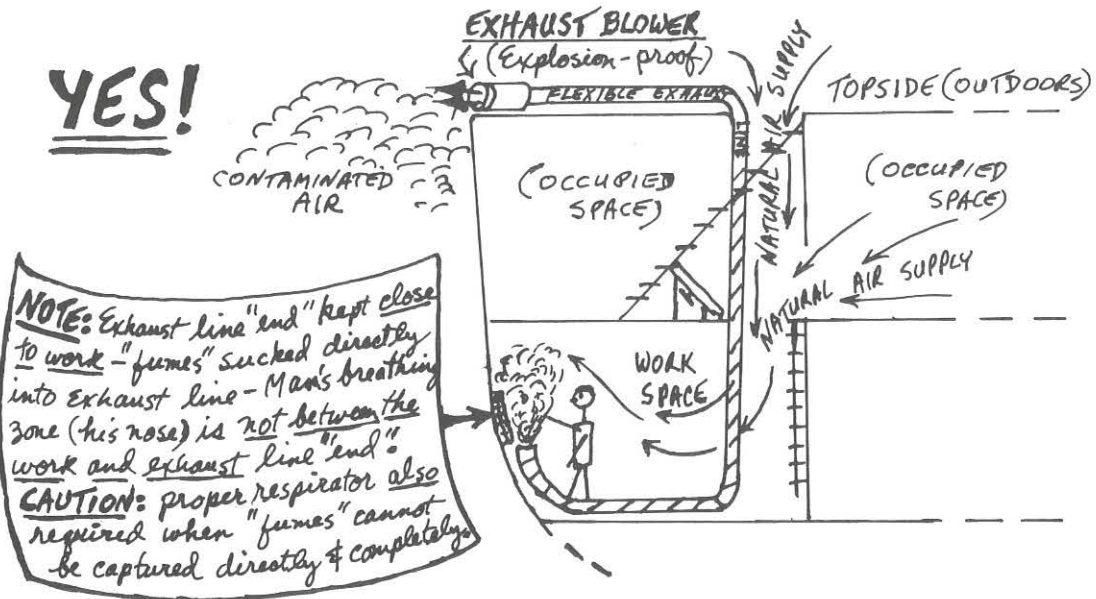 YES!
EXHAUST BLOWER
(Explosion-proof)
FLEXIBLE EXHAUST
LINE
NATURAL AIR SUPPLY
TOPSIDE (OUTDOORS)
CONTAMINATED
AIR
(OCCUPIED
SPACE)
(OCCUPIED
SPACE)
NATURAL AIR SUPPLY
WORK
SPACE
NOTE: Exhaust line "end" kept close
to work - "fumes" sucked directly
into exhaust line - Man's breathing
zone (his nose) is not between the
work and exhaust line "end".
CAUTION: proper respirator also
required when "fumes" cannot
be captured directly & completely.